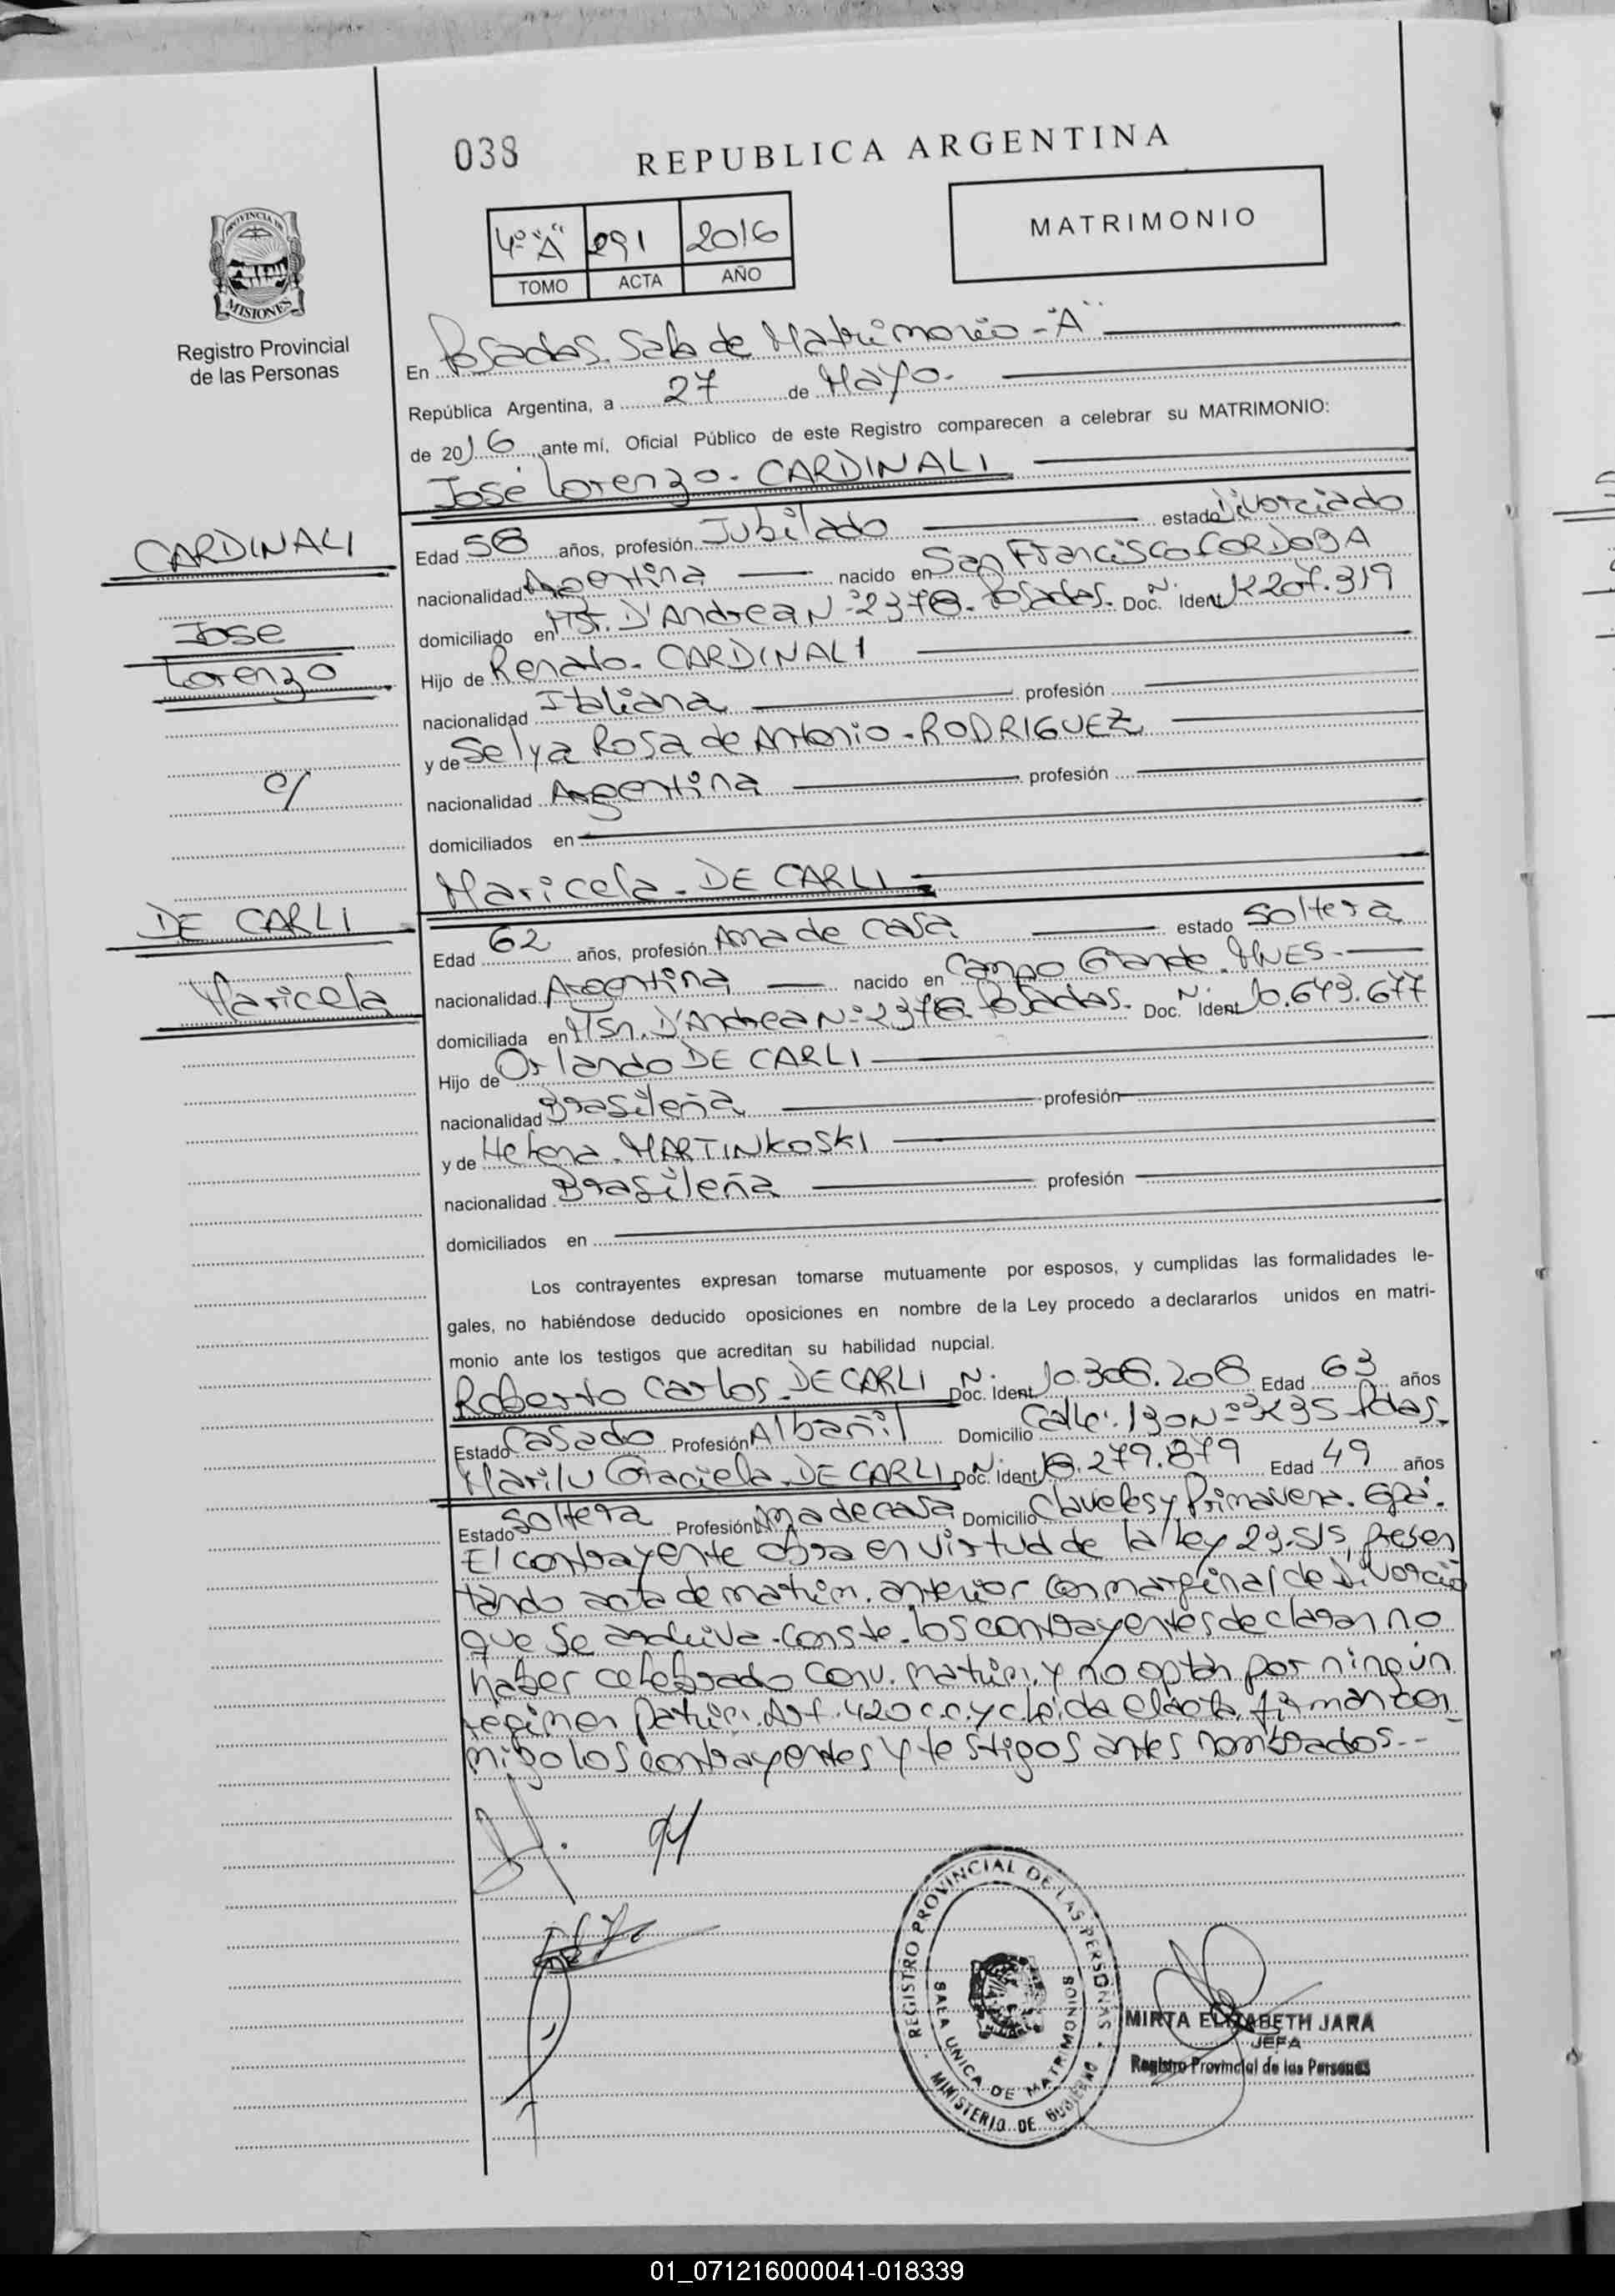 038
REPUBLICA ARGENTINA
4º "A" 291 2016
TOMO ACTA AÑO
MATRIMONIO
PROVINCIA DE
MISIONES
Registro Provincial
de las Personas
En Posadas. Sala de Matrimonio - "A"
República Argentina, a 27 de Mayo.
de 2016 ante mí, Oficial Público de este Registro comparecen a celebrar su MATRIMONIO:
José Lorenzo. CARDINALI
CARDINALI
Jose
Lorenzo
c/
Edad 58 años, profesión Jubilado estado Divorciado
nacionalidad Argentina nacido en San Francisco CORDOBA
domiciliado en D'Andrea Nº 2378. Posadas. Doc. Nº Ident 12.207.319
Hijo de Renato. CARDINALI
nacionalidad Italiana profesión
y de Selva Rosa de Antonio - RODRIGUEZ
nacionalidad Argentina profesión
domiciliados en
Maricela - DE CARLI
DE CARLI
Maricela
Edad 62 años, profesión Ama de casa estado Soltera
nacionalidad Argentina nacido en Campo Grande. MNES.
domiciliada en Msñ. D'Andrea Nº 2378. Posadas. Doc. Nº Ident 10.649.677
Hijo de Orlando DE CARLI
nacionalidad Brasileña profesión
y de Helena. MARTINKOSKI
nacionalidad Brasileña profesión
domiciliados en
Los contrayentes expresan tomarse mutuamente por esposos, y cumplidas las formalidades le-
gales, no habiéndose deducido oposiciones en nombre de la Ley procedo a declararlos unidos en matri-
monio ante los testigos que acreditan su habilidad nupcial.
Roberto Carlos. DE CARLI Doc. Nº Ident 10.308.208 Edad 63 años
Estado Casado Profesión Albañil Domicilio Calle: 130 Nº Pdas.
Marilu Graciela. DE CARLI Doc. Nº Ident 18.279.879 Edad 49 años
Estado Soltera Profesión Ama de casa Domicilio Claveles y Primavera. Gpá.
El contrayente obra en virtud de la ley 23.515, presen
tando acta de matrim. anterior con marginal de Divorcio
que se archiva. Conste. los contrayentes declaran no
haber celebrado conv. matrim. y no optan por ningún
regimen patrim. Art. 420 c.c. y c. leida el acta, firman con_
migo los contrayentes y testigos antes nombrados.--
REGISTRO PROVINCIAL DE LAS PERSONAS
SALA UNICA DE MATRIMONIOS
MINISTERIO DE GOBIERNO
MIRTA ELIZABETH JARA
JEFA
Registro Provincial de las Personas
01_071216000041-018339